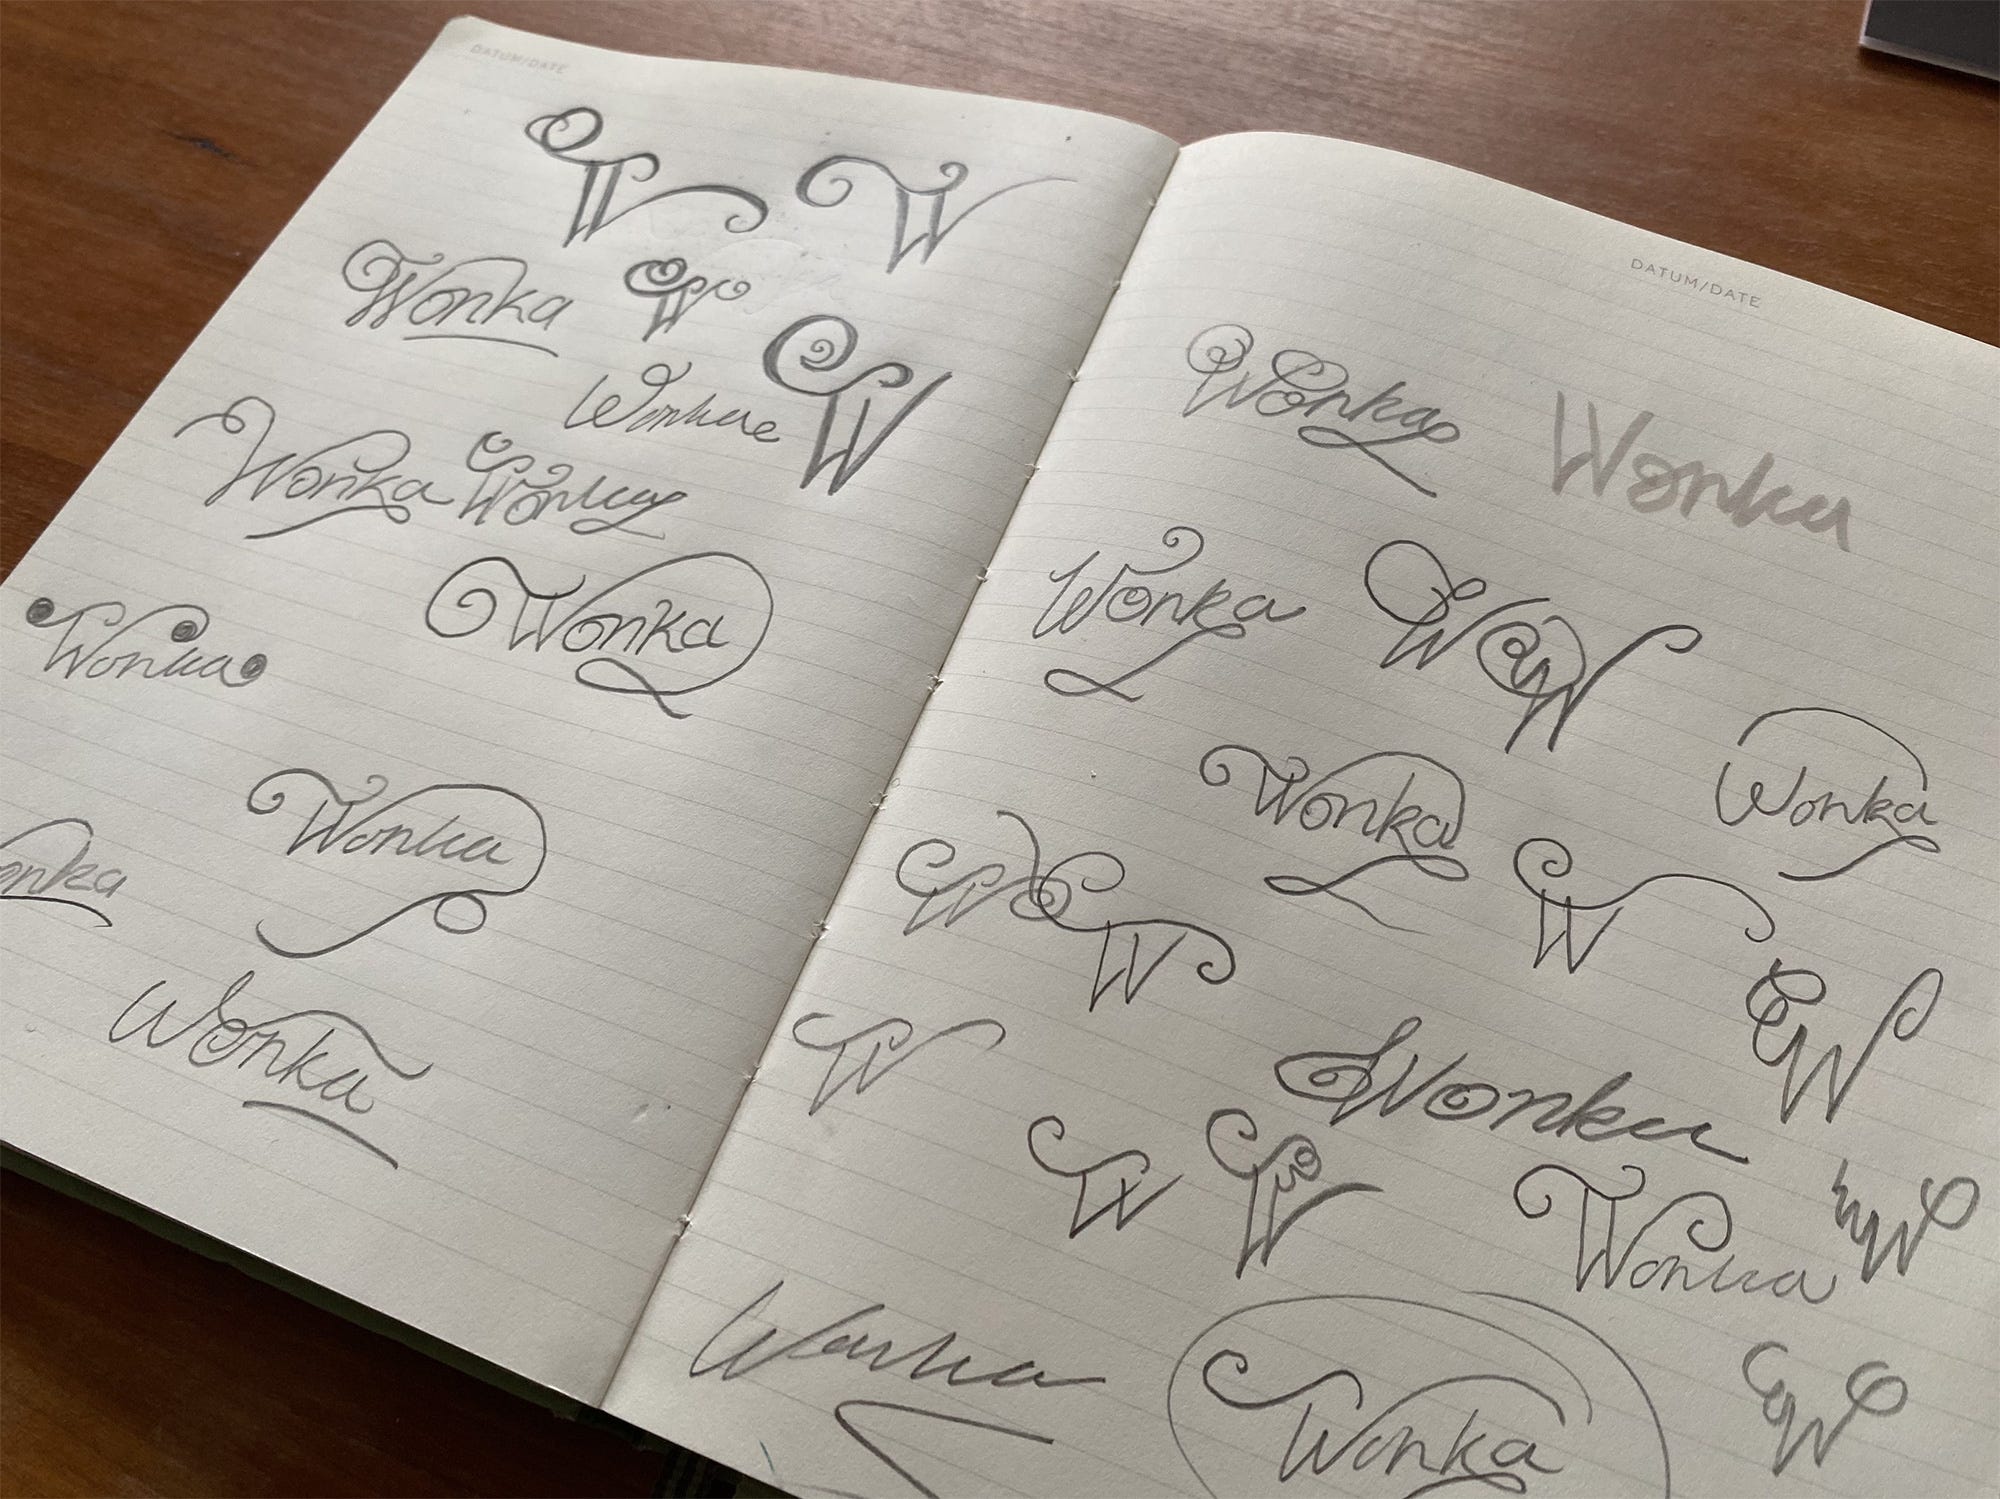 DATUM/DATE
W W
Wonka W
W
Wonkae
Wonka Wonka
Wonka
Wonka
Wonka
onka
Wonka
DATUM/DATE
Wonka Wonka
Wonka W W
Wonka
Wonka
W W W
W
W
Wonka
W W
Wonka
W
Wonka
Wonka
W